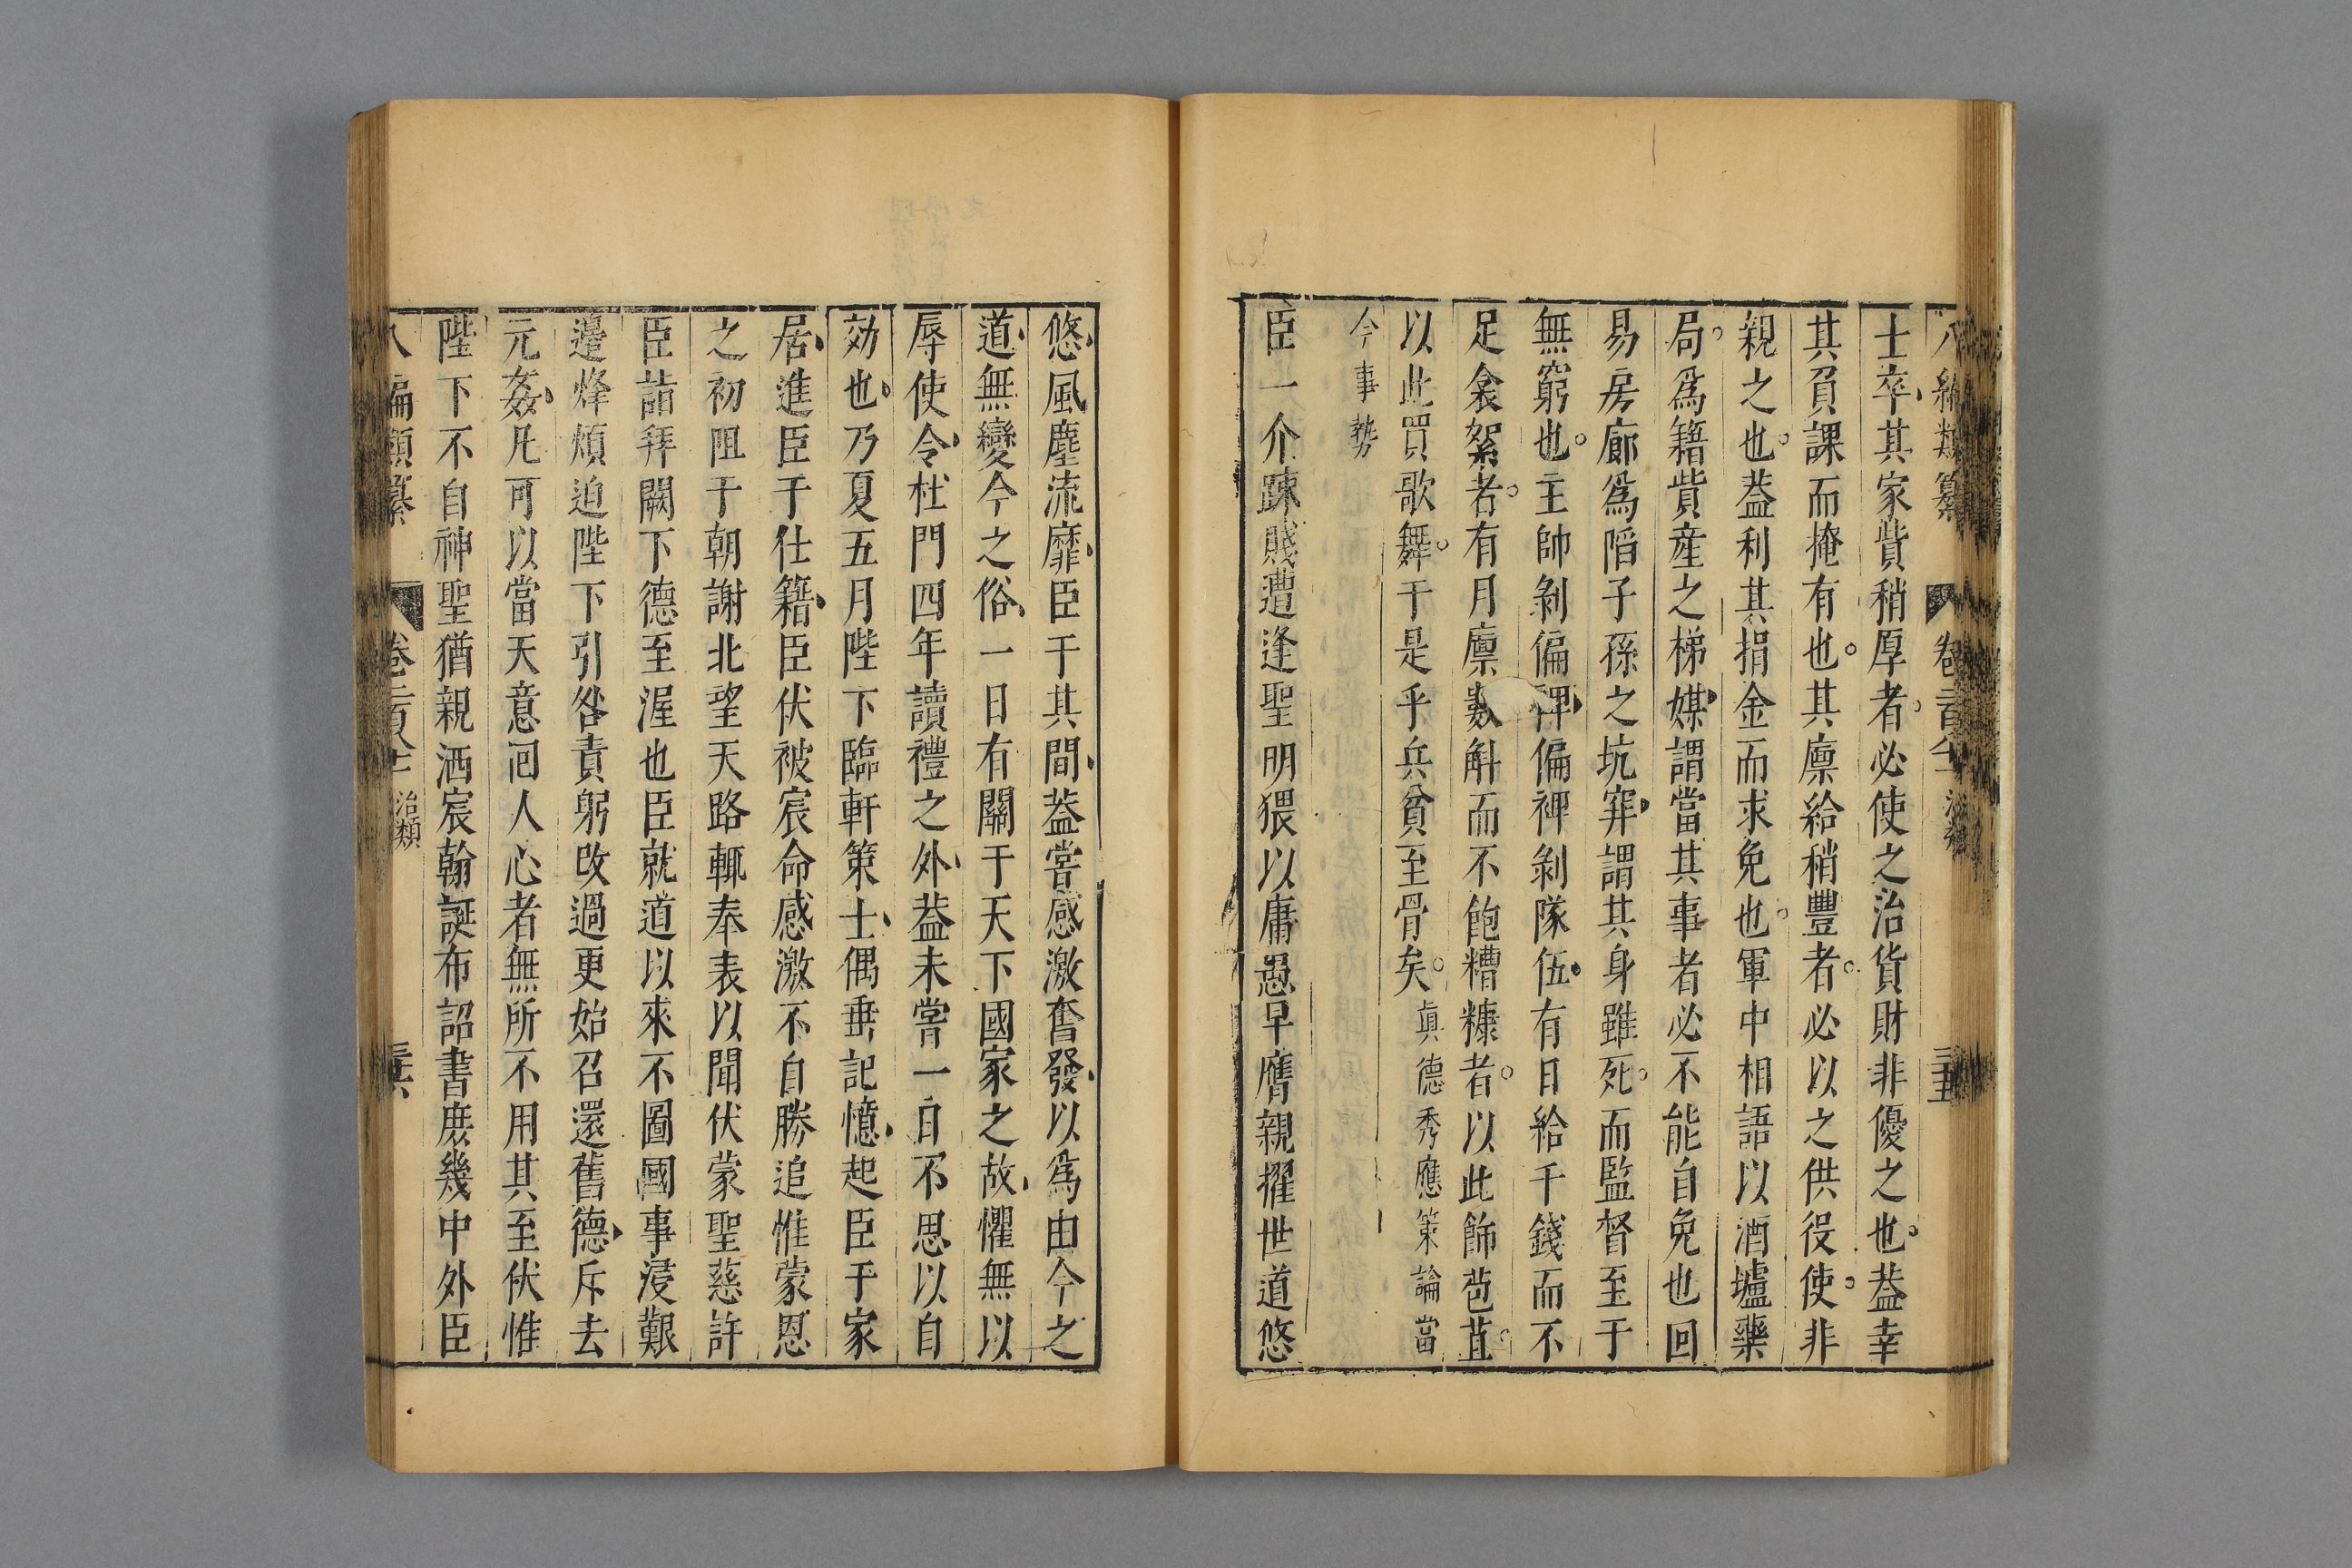 八編類纂 卷二百八十一 治類 三五
士卒其家貲稍厚者必使之治貨財非優之也葢幸
其負課而掩有也其廪給稍豐者必以之供役使非
親之也葢利其捐金而求免也軍中相語以酒壚藥
局爲籍貲産之梯媒謂當其事者必不能自免也回
易房廊爲陷子孫之坑穽謂其身雖死而監督至于
無窮也主帥剝偏裨偏裨剝隊伍有日給千錢而不
足衾絮者有月廪數斛而不飽糟糠者以此飾苞苴
以此買歌舞于是乎兵貧至骨矣眞德秀應策論當
今事勢
臣一介踈賤遭逢聖明猥以庸愚早膺親擢世道悠
悠風塵流靡臣于其間葢嘗感激奮發以爲由今之
道無變今之俗一日有關于天下國家之故懼無以
辱使令杜門四年讀禮之外葢未嘗一日不思以自
効也乃夏五月陛下臨軒策士偶垂記憶起臣于家
居進臣于仕籍臣伏被宸命感激不自勝追惟蒙恩
之初阻于朝謝北望天路輒奉表以聞伏蒙聖慈許
臣詣拜闕下德至渥也臣就道以來不圖國事浸艱
邊烽煩迫陛下引咎責躬改過更始召還舊德斥去
元姦凡可以當天意囘人心者無所不用其至伏惟
陛下不自神聖猶親洒宸翰誕布詔書庶幾中外臣
八編類纂 卷二百八十一 治類 三六